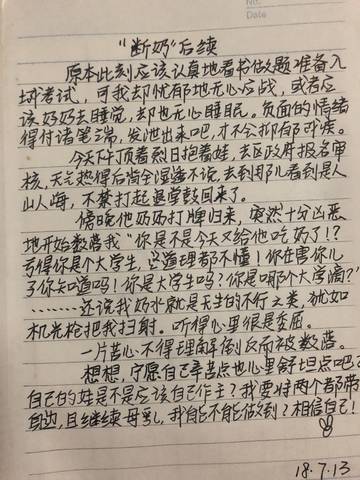 Date
“断奶”后续
原本此刻应该认真地看书做题准备入
城考试，可我却忧郁地无心应战，或者应
该好好去睡觉，却也无心睡眠。负面的情绪
得付诸笔端，发泄出来吧，才不会抑郁成疾。
今天下午顶着烈日抱着娃，去区政府报名审
核，天气热得后背全湿透不说，去到那儿看到是人
山人海，不禁打起退堂鼓回来了。
傍晚他奶奶打牌归来，突然十分凶恶
地开始数落我“你是不是今天又给他吃奶了!?
亏得你是个大学生，这道理都不懂！你在害你儿
子你知道吗！你是大学生吗？你是哪个大学滴？”
………还说我奶水就是天生的不行之类，犹如
机关枪把我扫射。听得心里很是委屈。
一片苦心不得理解倒反而被数落。
想想，宁愿自己辛苦点也心里舒坦点吧？
自己的娃是不是应该自己作主？我要将两个都带
自边，且继续母乳，我自己能不能做到？相信自己！
18.7.13